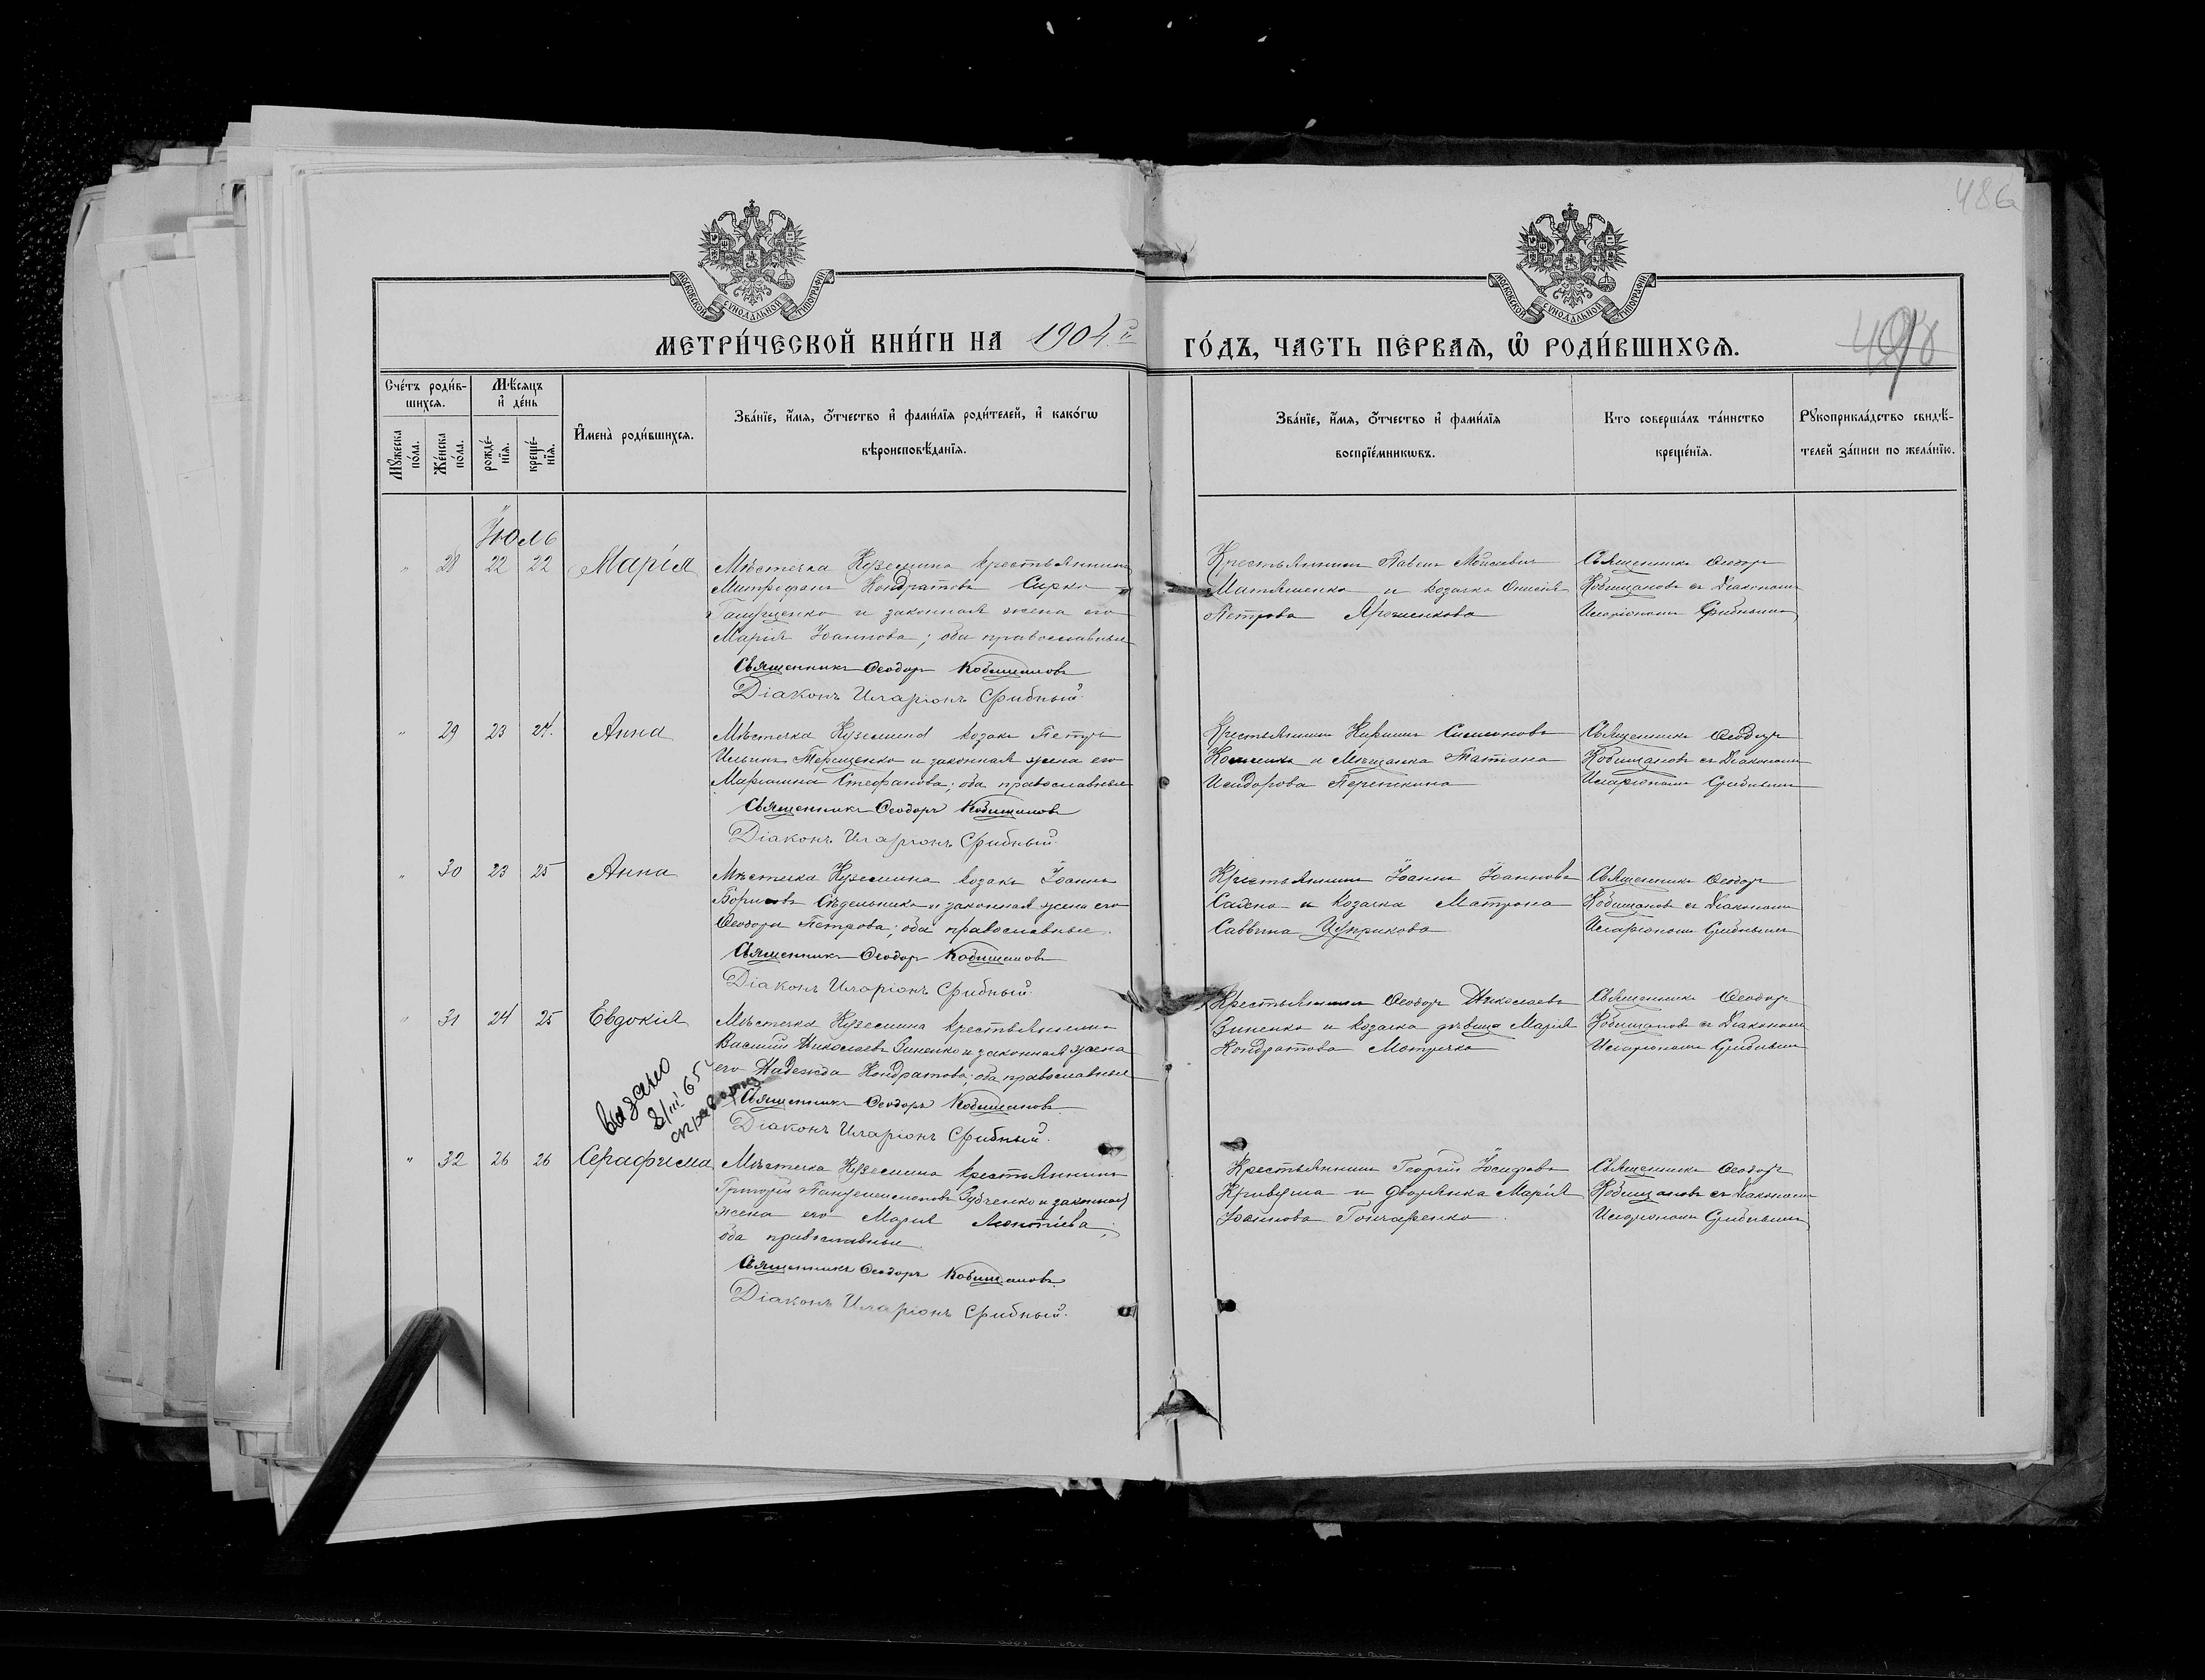 486
МОСКОВСКОЙ СУНОДАЛЬНОЙ ТИПОГРАФІИ
МОСКОВСКОЙ СУНОДАЛЬНОЙ ТИПОГРАФІИ
МЕТРИ́ЧЕСКОЙ КНИ́ГИ НА 1904 й ГО́ДЪ, ЧАСТЬ ПЕ́РВАѦ, Ѡ РОДИ́ВШИХСѦ.
Сче́тъ роди́в-
шихсѧ.
Мꙋ́жеска по́ла.
Же́нска по́ла.
Мѣ́сѧцъ и де́нь
рожде́-нїѧ.
креще́-нїѧ.
Имена̀ роди́вшихсѧ.
Зва́нїе, и́мѧ, о́тчество и фами́лїѧ роди́телей, и како́гѡ
вѣроисповѣ́данїѧ.
Зва́нїе, и́мѧ, о́тчество и фами́лїѧ
воспрїе́мникѡвъ.
Кто соверша́лъ та́инство
креще́нїѧ.
Рꙋкоприкла́дство свидѣ́-
телей за́писи по жела́нїю.
Іюль
" 28 22 22 Марія
Мѣстечка Куземина крестьянинъ
Митрофанъ Кондратовъ Сирко-
и законная жена его
Марія Іоаннова; оба православные
Священникъ Ѳеодоръ Кобищановъ
Діаконъ Иларіонъ Срибный.
Крестьянинъ Павелъ Моисеевъ
Матяшенко и козачка
Петрова
Священникъ Ѳеодоръ
Кобищановъ съ Діакономъ
Иларіономъ Срибнымъ
" 29 23 24. Анна
Мѣстечка Куземина козакъ Петръ
Ильинъ Терещенко и законная жена его
Маріамна Стефанова; оба православные
Священникъ Ѳеодоръ Кобищановъ
Діаконъ Иларіонъ Срибный.
Крестьянинъ Симоновъ
и мѣщанка Татіана
Исидорова
Священникъ Ѳеодоръ
Кобищановъ съ Діакономъ
Иларіономъ Срибнымъ
" 30 23 25 Анна
Мѣстечка Куземина козакъ Іоаннъ
Борисовъ Сѣдельникъ и законная жена его
Ѳеодора Петрова; оба православные.
Священникъ Ѳеодоръ Кобищановъ
Діаконъ Иларіонъ Срибный.
Крестьянинъ Іоаннъ Іоанновъ
и козачка Матрона
Саввина Цуприкова
Священникъ Ѳеодоръ
Кобищановъ съ Діакономъ
Иларіономъ Срибнымъ
" 31 24 25 Евдокія
Мѣстечка Куземина крестьянинъ
Василій Николаевъ Зиненко и законная жена
его Надежда Кондратова; оба православные
Священникъ Ѳеодоръ Кобищановъ
Діаконъ Иларіонъ Срибный.
Крестьянинъ Ѳеодоръ Николаевъ
Зиненко и козачка дѣвица Марія
Кондратова
Священникъ Ѳеодоръ
Кобищановъ съ Діакономъ
Иларіономъ Срибнымъ
выдано
65
" 32 26 26 Серафима
Мѣстечка Куземина крестьянинъ
Григорій Пантелеимоновъ и законная
жена его Марія;
оба православные
Священникъ Ѳеодоръ Кобищановъ.
Діаконъ Иларіонъ Срибный.
Крестьянинъ Георгій Іосифовъ
и дворянка Марія
Іоаннова Гончаренко.
Священникъ Ѳеодоръ
Кобищановъ съ Діакономъ
Иларіономъ Срибнымъ